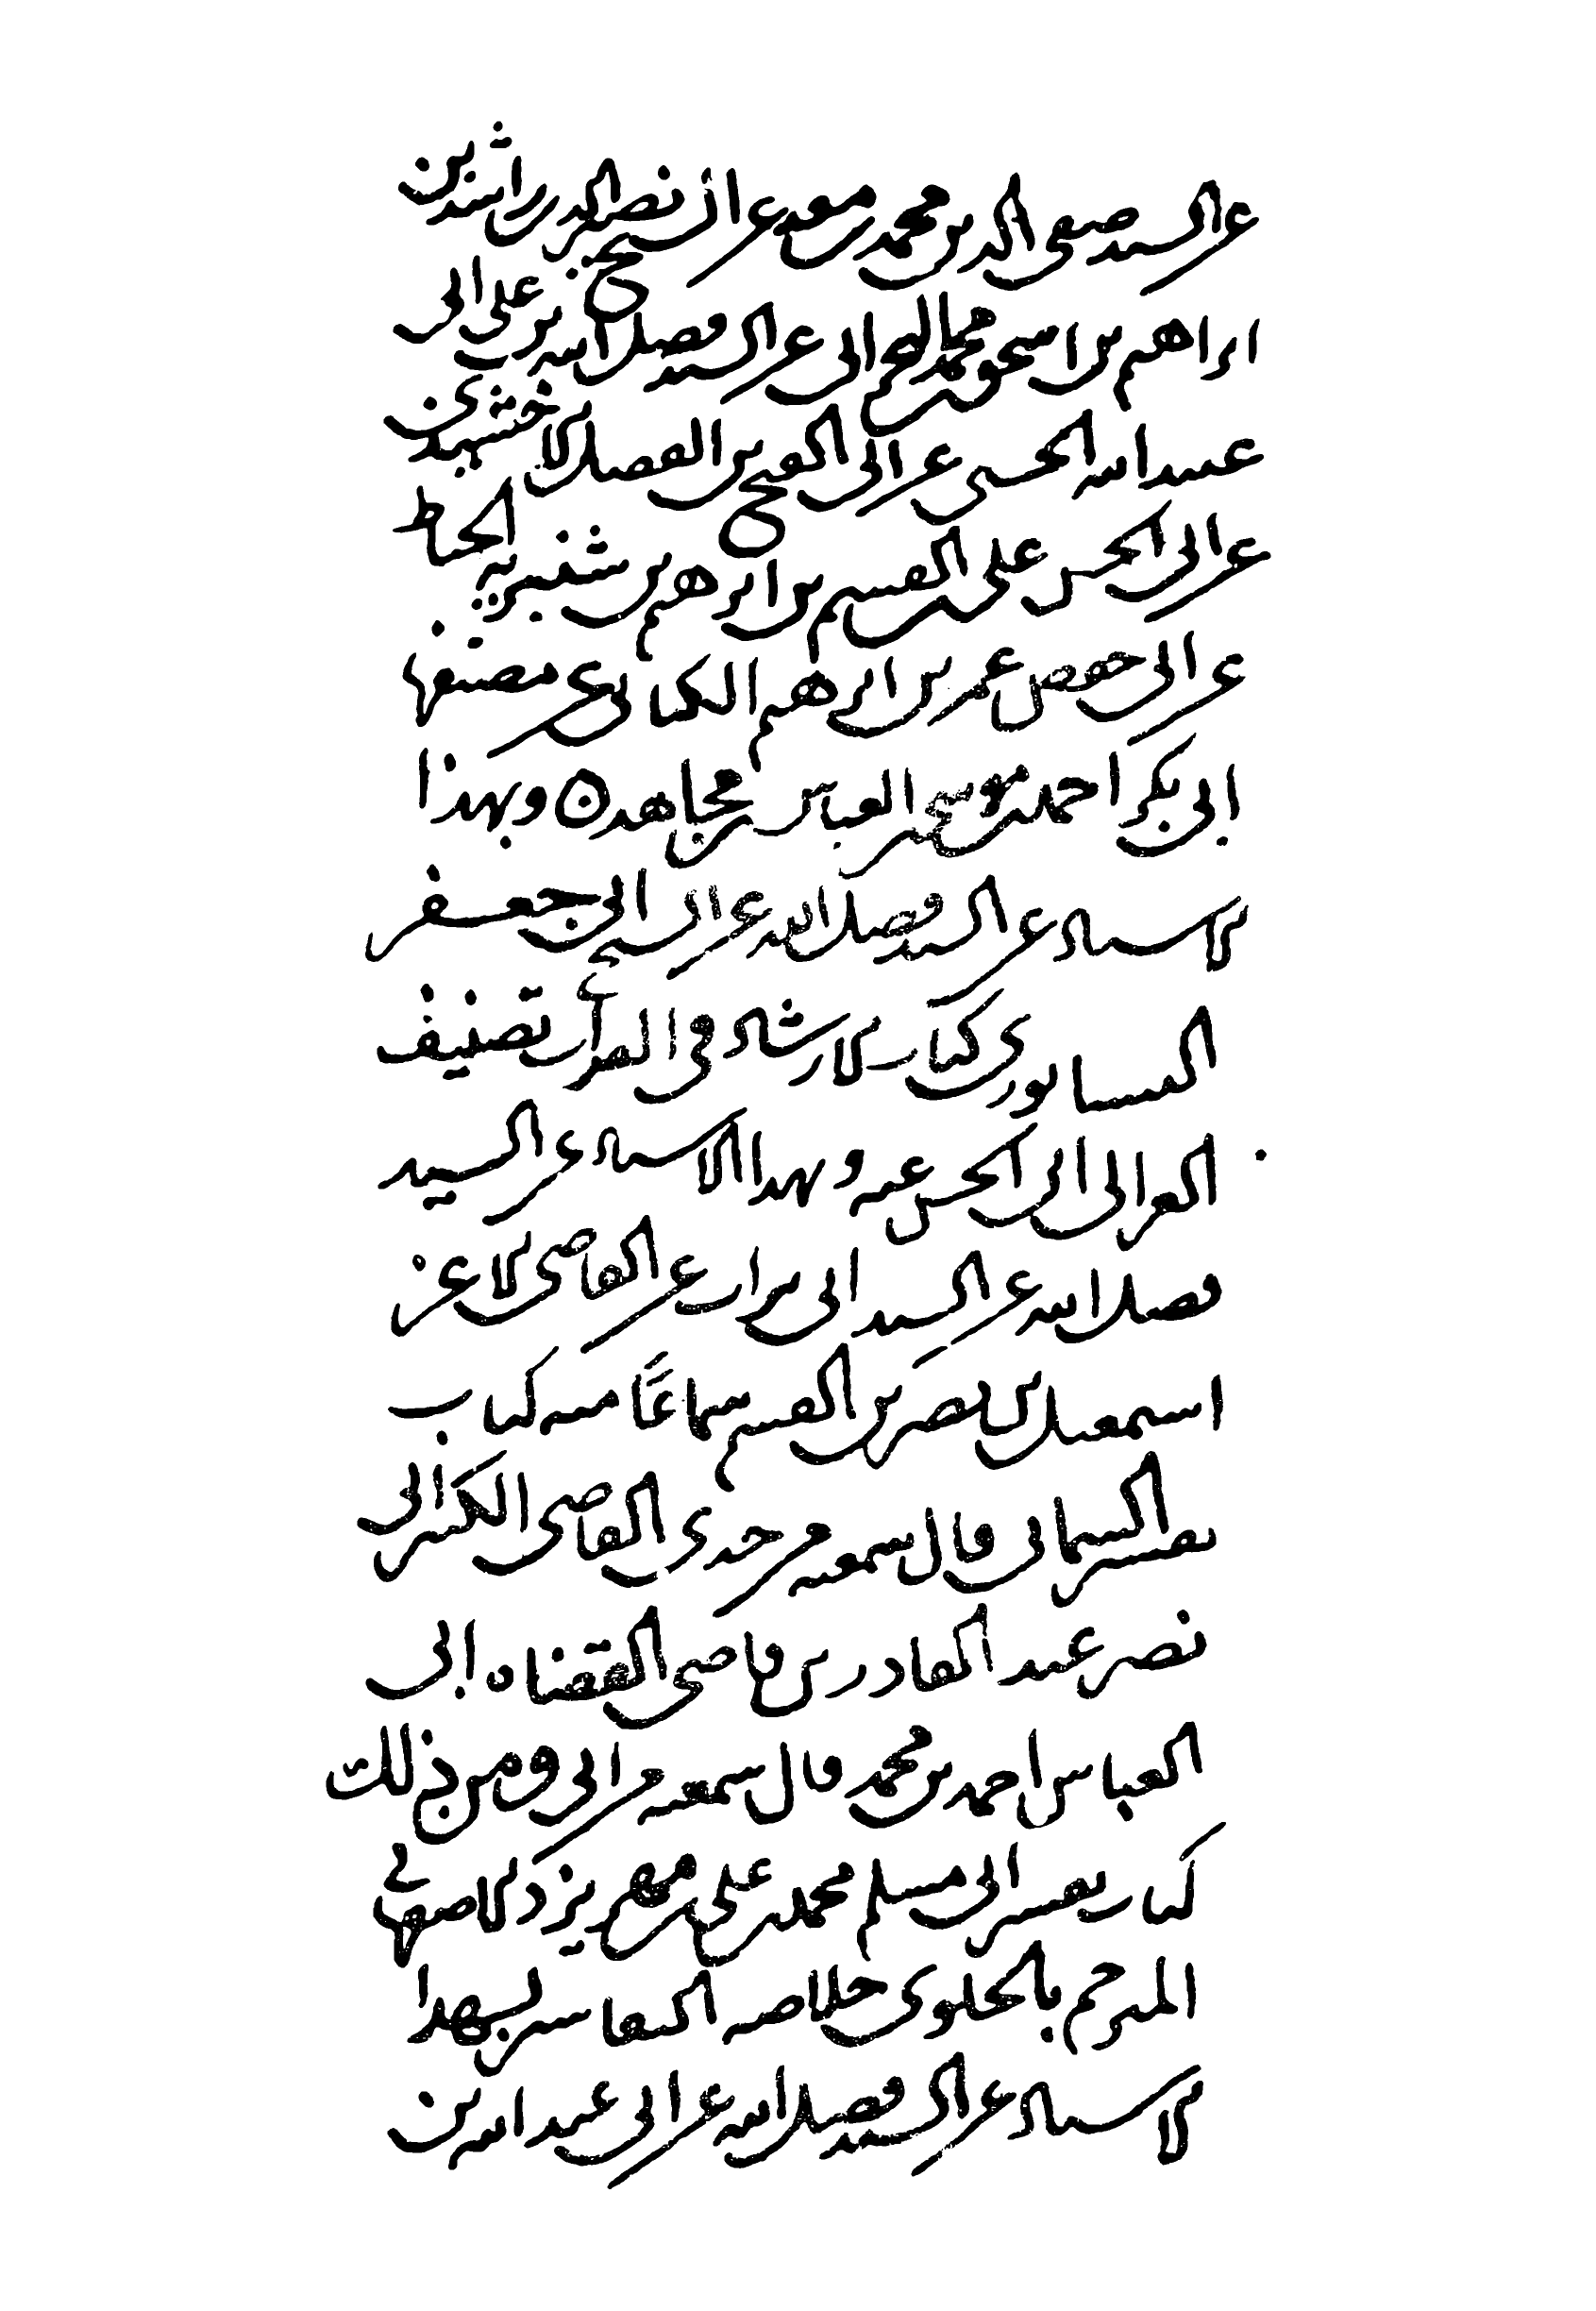 عن السيد صفي الدين محمد بن معد عن الشيخ نصير الدين راشد بن
ابراهيم بن اسحق بن محمد البحراني عن السيد فضل الله بن علي ابي
عبيد الله الحسني عن ابي الفتح بن الفضل الاخشيدي
عن ابي الحسن علي بن القسم بن ابرهيم بن شنبويه الخياط
عن ابي حفص عمر بن ابرهيم الكتاني عن مصنفها
ابي بكر احمد بن موسى بن العباس بن مجاهد وبهذا
الاسناد عن السيد فضل الله عن الشيخ ابي جعفر
النيسابوري كتاب الارشاد في القرآن تصنيف
ابي الحسن عنه وبهذا الاسناد عن السيد
فضل الله عن السيد ابي تراب عن القاضي الاعز
اسمعيل بن نصر بن القسم سماعًا منه كتاب
تفسير السماني قال سمعه من جدي القاضي الكبير ابي
نصر عبد القادر بن قاضي القضاه ابي
العباس احمد بن محمد قال سمعه من ابي ومن ذلك
كتاب تفسير ابي مسلم محمد بن علي بن مهريزد الاصفهاني
المترجم بالحلوى خلاصه التفاسير بهذا
الاسناد عن السيد فضل الله عن ابي عبد الله بن